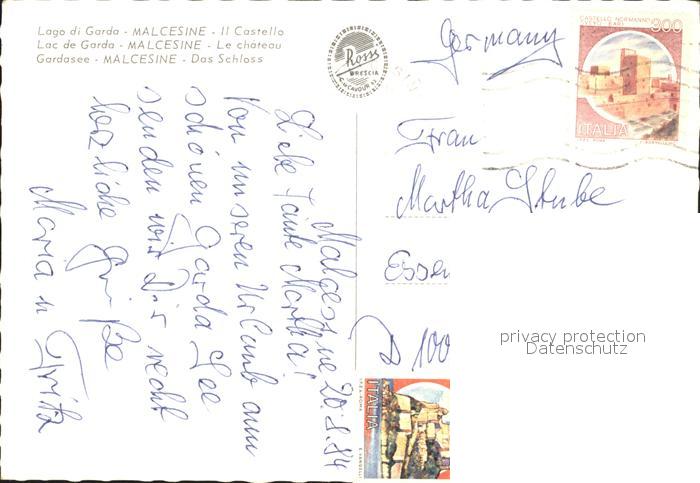 Lago di Garda - MALCESINE - Il Castello
Lac de Garda - MALCESINE - Le château
Gardasee - MALCESINE - Das Schloss
Rossi
BRESCIA
Germany
300
CASTELLO NORMANNO
SVEVO BARI
ITALIA
Malcesine 20.8.84
Liebe Tante Martha!
Von unseren Urlaub am
schönen Garda See
senden wir Dir recht
herzliche Grüße
Maria u Fritz
Frau
Martha Stube
Essen
D 100
ITALIA
privacy protection
Datenschutz